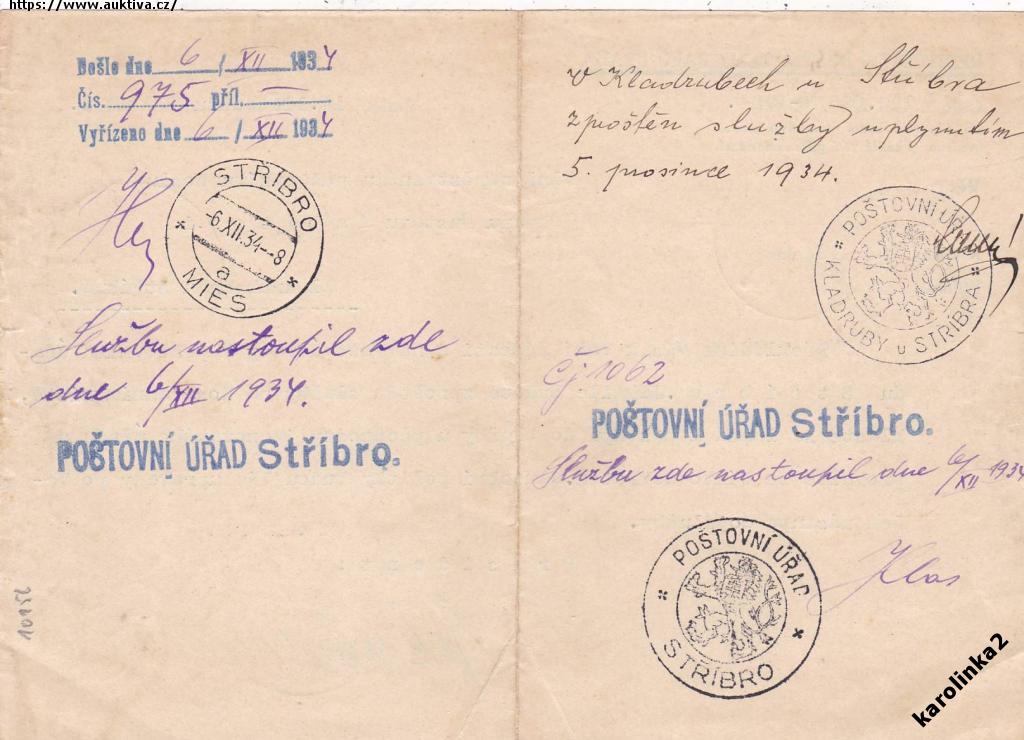 https://www.auktiva.cz/
Došlo dne 6 / XII 1934
Čís. 975 příl. —
Vyřízeno dne 6 / XII 1934
STŘÍBRO
-6.XII.34.--8
a
MIES
Službu nastoupil zde
dne 6/XII 1934.
POŠTOVNÍ ÚŘAD Stříbro.
10152
V Kladrubech u Stříbra
zproštěn služby uplynutím
5. prosince 1934.
POŠTOVNÍ ÚŘAD
KLADRUBY u STŘÍBRA
Čj 1062
POŠTOVNÍ ÚŘAD Stříbro.
Službu zde nastoupil dne 6/XII 1934
Klas
POŠTOVNÍ ÚŘAD
STŘÍBRO
karolinka2